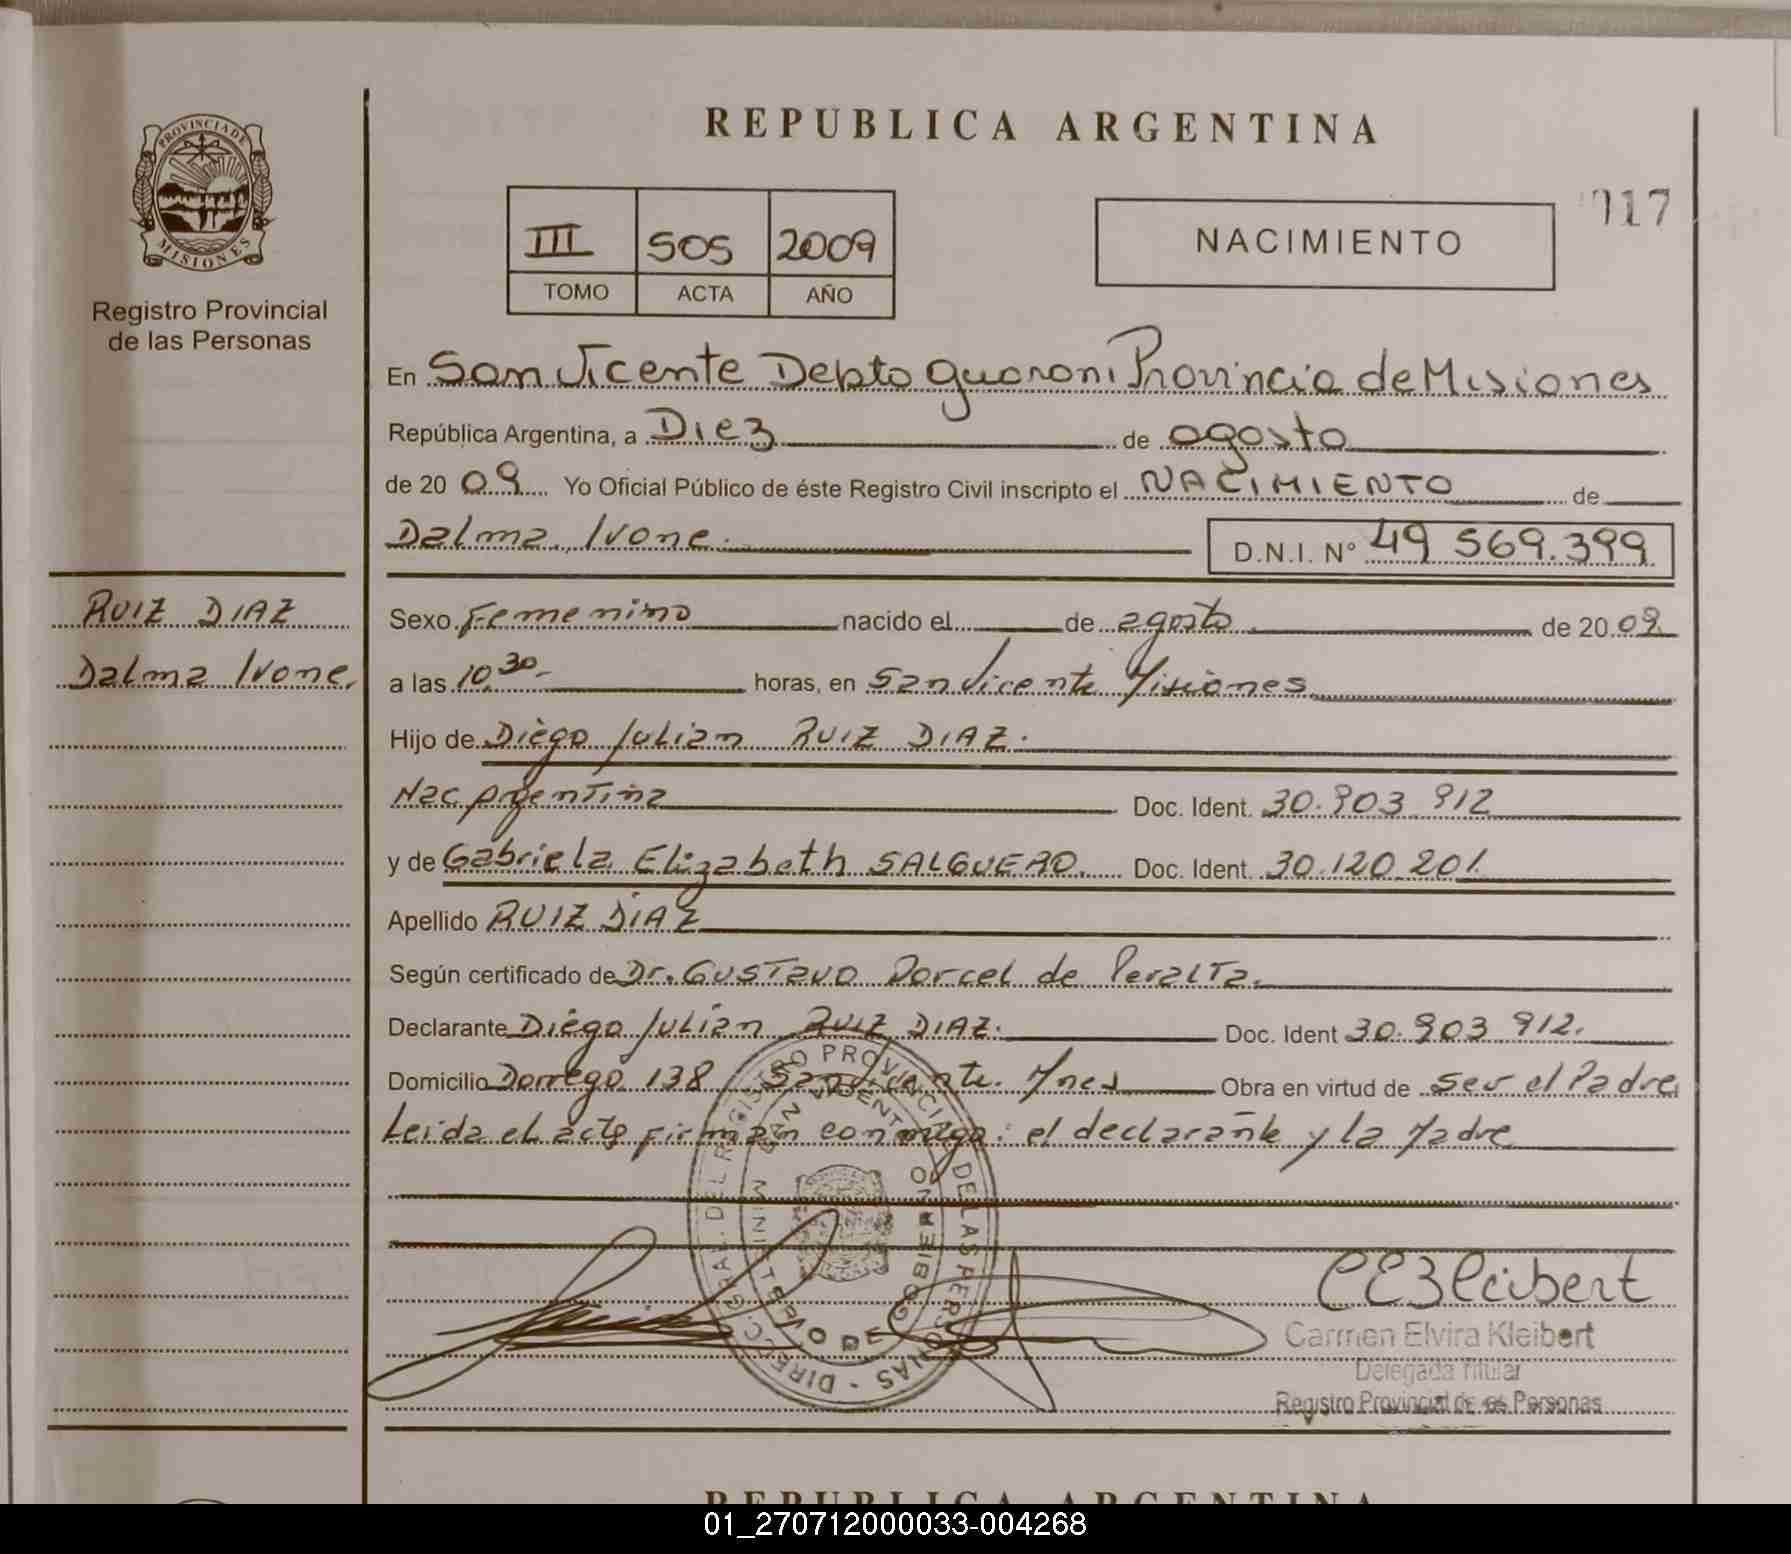 REPUBLICA ARGENTINA
PROVINCIA DE
MISIONES
Registro Provincial
de las Personas
III 505 2009
TOMO ACTA AÑO
NACIMIENTO
017
En San Vicente Depto guarani Provincia de Misiones
República Argentina, a Diez de agosto
de 20 09 Yo Oficial Público de éste Registro Civil inscripto el NACIMIENTO de
Dalma Ivone.
D.N.I. Nº 49 569.399
RUIZ DIAZ
Dalma Ivone.
Sexo Femenino nacido el de agosto de 20 09
a las 10,30 horas, en San Vicente Misiones
Hijo de Diego Julian RUIZ DIAZ.
Nac Argentina Doc. Ident. 30.903 912
y de Gabriela Elizabeth SALGUERO. Doc. Ident. 30.120.201.
Apellido RUIZ DIAZ
Según certificado de Dr. Gustavo Dorcel de Peralta.
Declarante Diego Julian RUIZ DIAZ. Doc. Ident 30.903 912.
Domicilio Dorrego 138 San Vicente. Mnes Obra en virtud de ser el Padre
Leida el acta firman conmigo: el declarante y la Madre
DIREC. GRAL. DEL REGISTRO PROVINCIAL DE LAS PERSONAS
SAN VICENTE
MINIST. DE GOBIERNO
CEKleibert
Carmen Elvira Kleibert
Delegada Titular
Registro Provincial de las Personas
REPUBLICA ARGENTINA
01_270712000033-004268